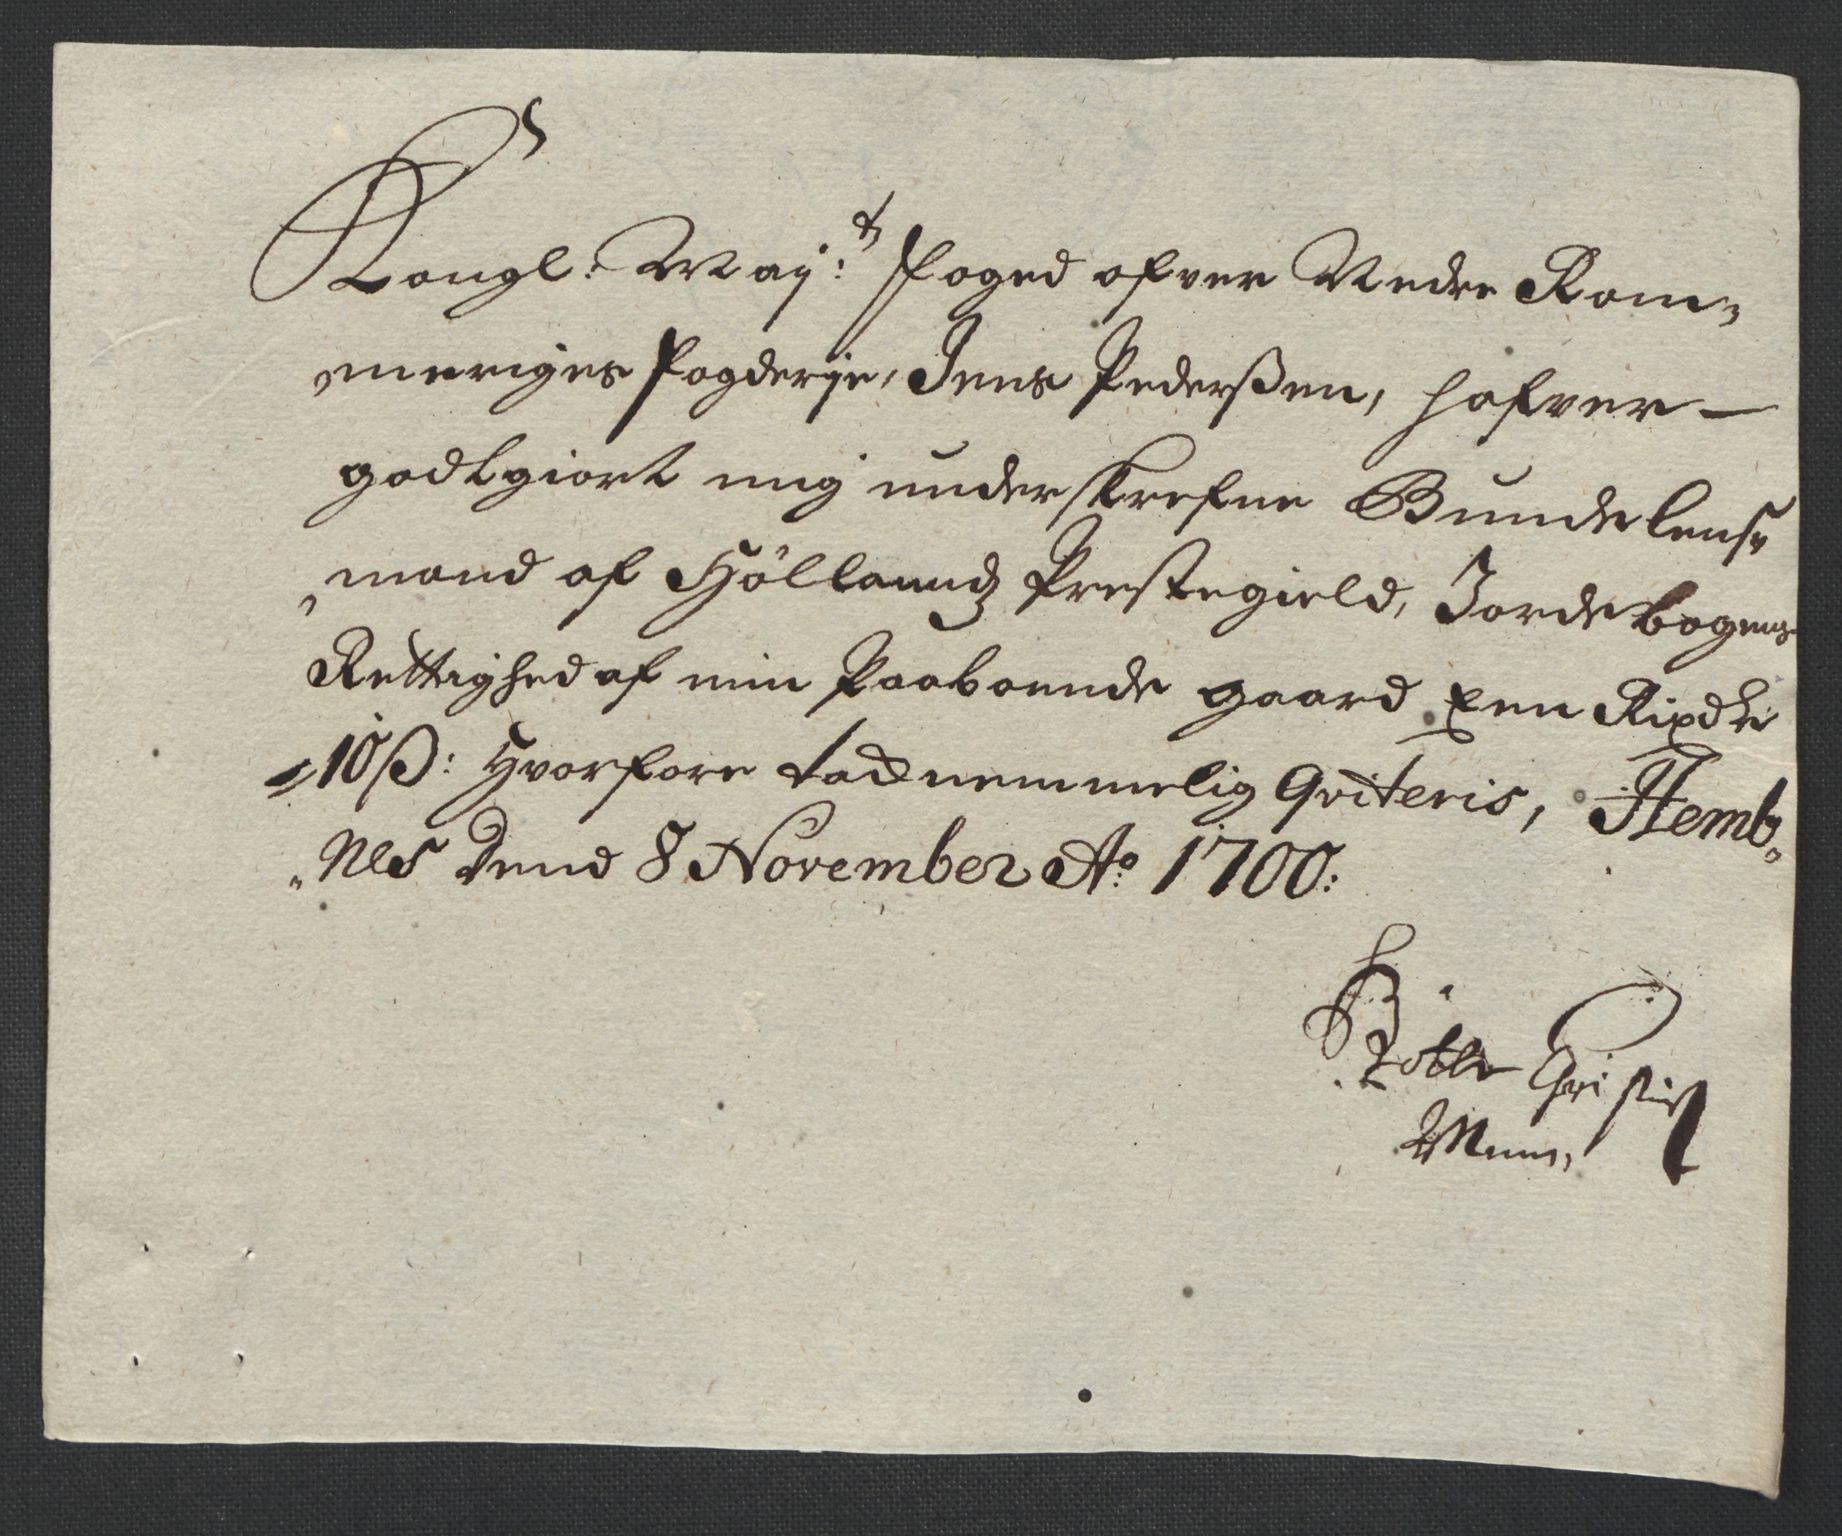 Kongl: May:t Foged ofver Nedre Rom-
meriges Fogderje, Jens Pederßen, hafver —
godtgiort mig underskrefne Bundelens-
mand af Höllandz Prestegield, Jordebogens
Rettighed af min Paaboende gaard Een Rixdlr
10 ß: Hvorfore tacknemmelig Qviteris, Hemb-
nes Dend 8 November Ao 1700: